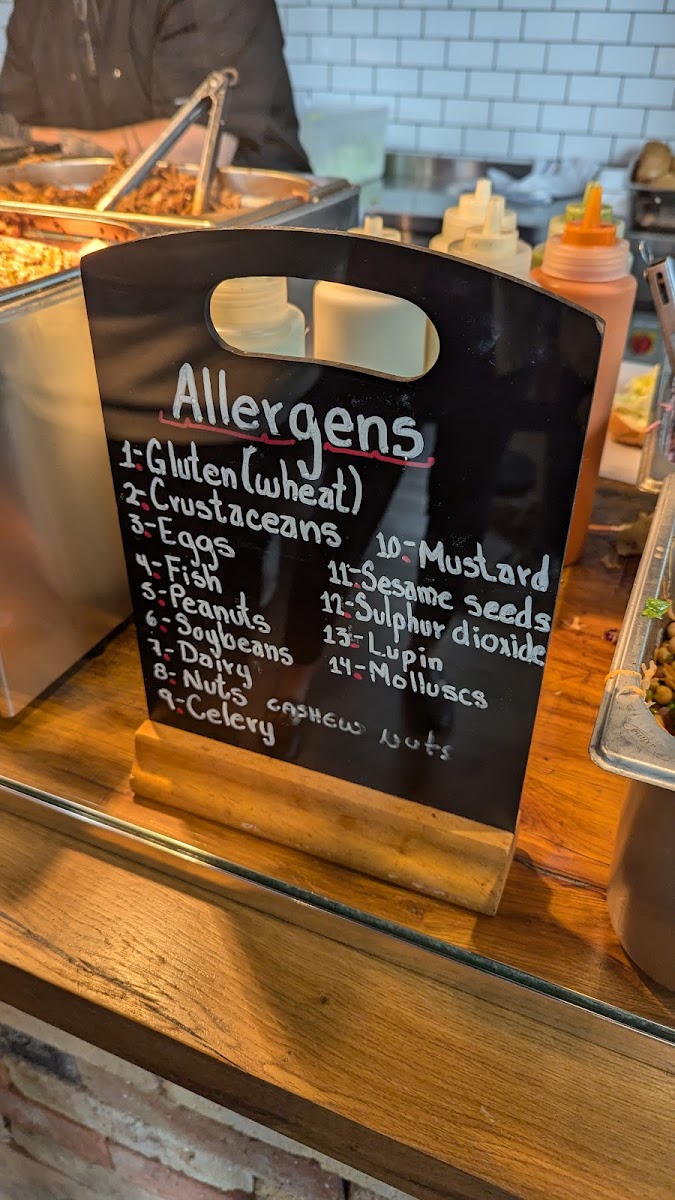 Allergens
1-Gluten(wheat)
2-Crustaceans
3-Eggs
4-Fish
5-Peanuts
6-Soybeans
7-Dairy
8-Nuts CASHEW NUTS
9-Celery
10-Mustard
11-Sesame seeds
12-Sulphur dioxide
13-Lupin
14-Molluscs